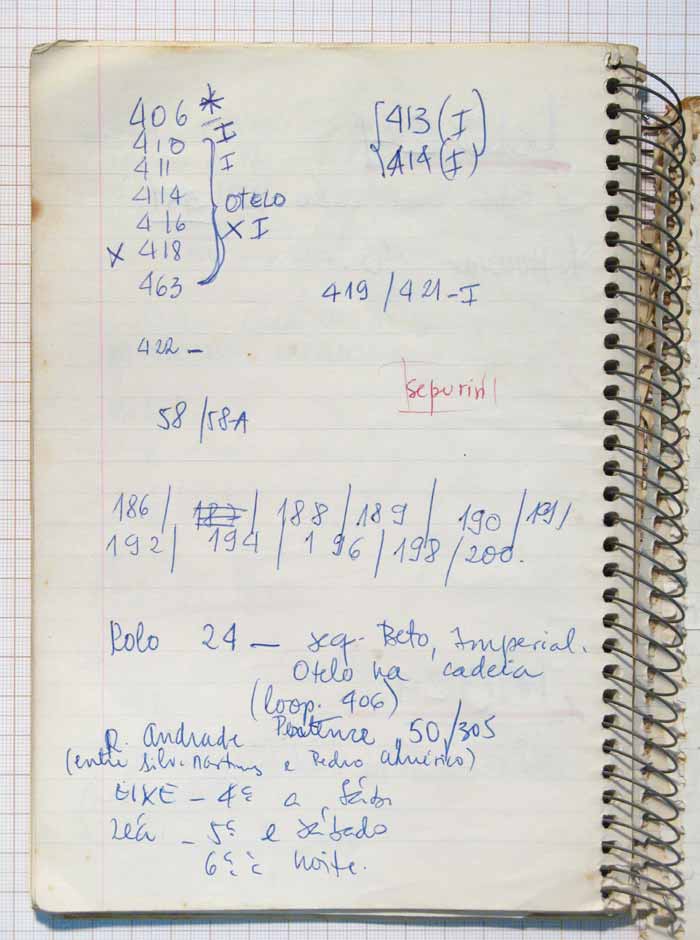 406 *
410 I
411 I
414
416
X 418
463
OTELO
X I
413 (I)
414 (I)
419 / 421 - I
422 -
sepurin
58 / 58A
186 / 187 / 188 / 189 / 190 / 191 /
192 / 194 / 196 / 198 / 200.
Rolo 24 — seq. Beto, Imperial.
Otelo na cadeia
(loop. 406)
R. Andrade Pertence, 50/305
(entre Silv. Martins e Pedro Américo)
- 4ª a
- 5ª e sábado
6ª à noite.